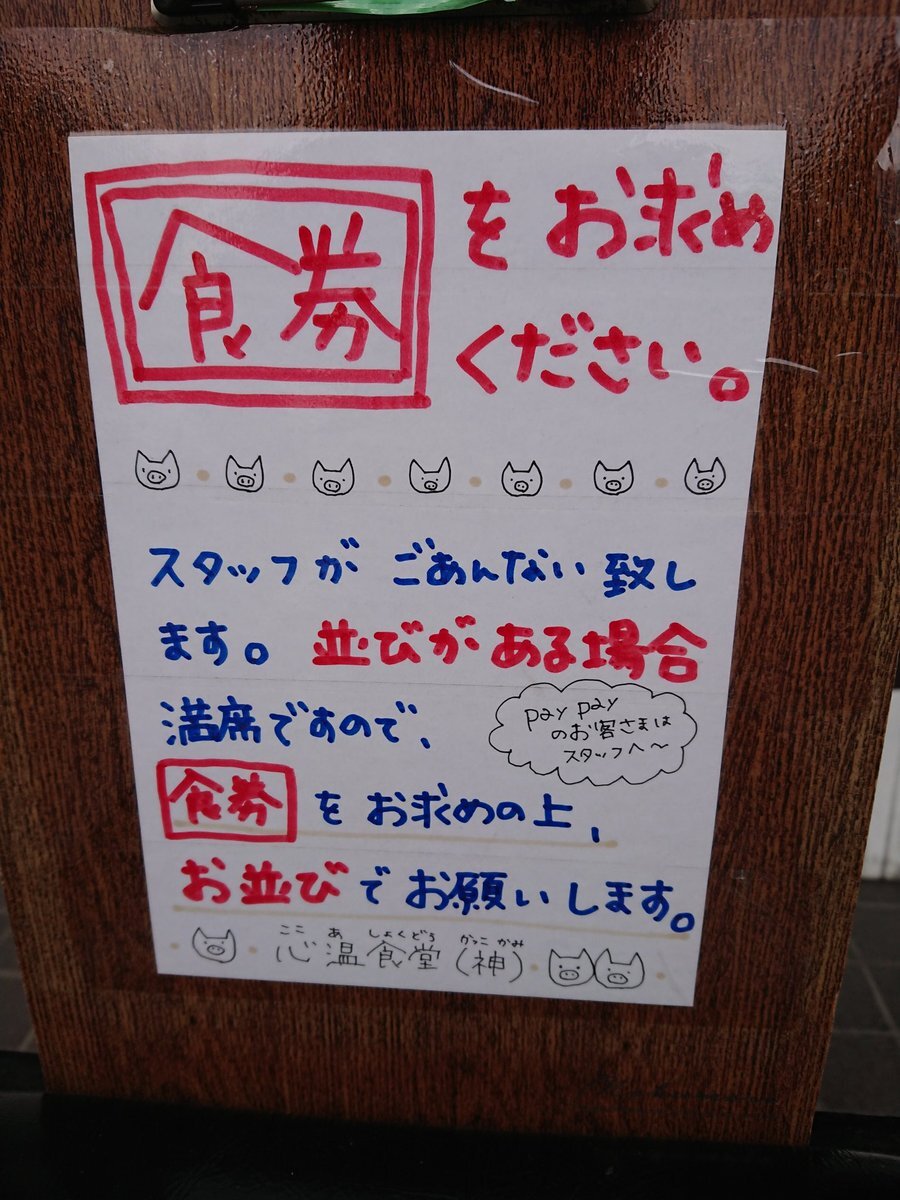 食券をお求め
ください。
スタッフが ごあんない致し
ます。並びがある場合
満席ですので、
pay pay
のお客さまは
スタッフへ～
食券をお求めの上、
お並びでお願いします。
ここ あ しょくどう かっこ かみ
心温食堂(神)